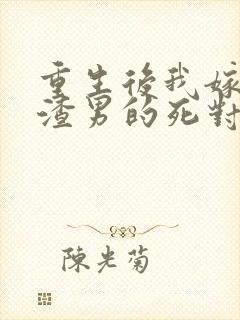 重生後我嫁
渣男的死對
陳光菊